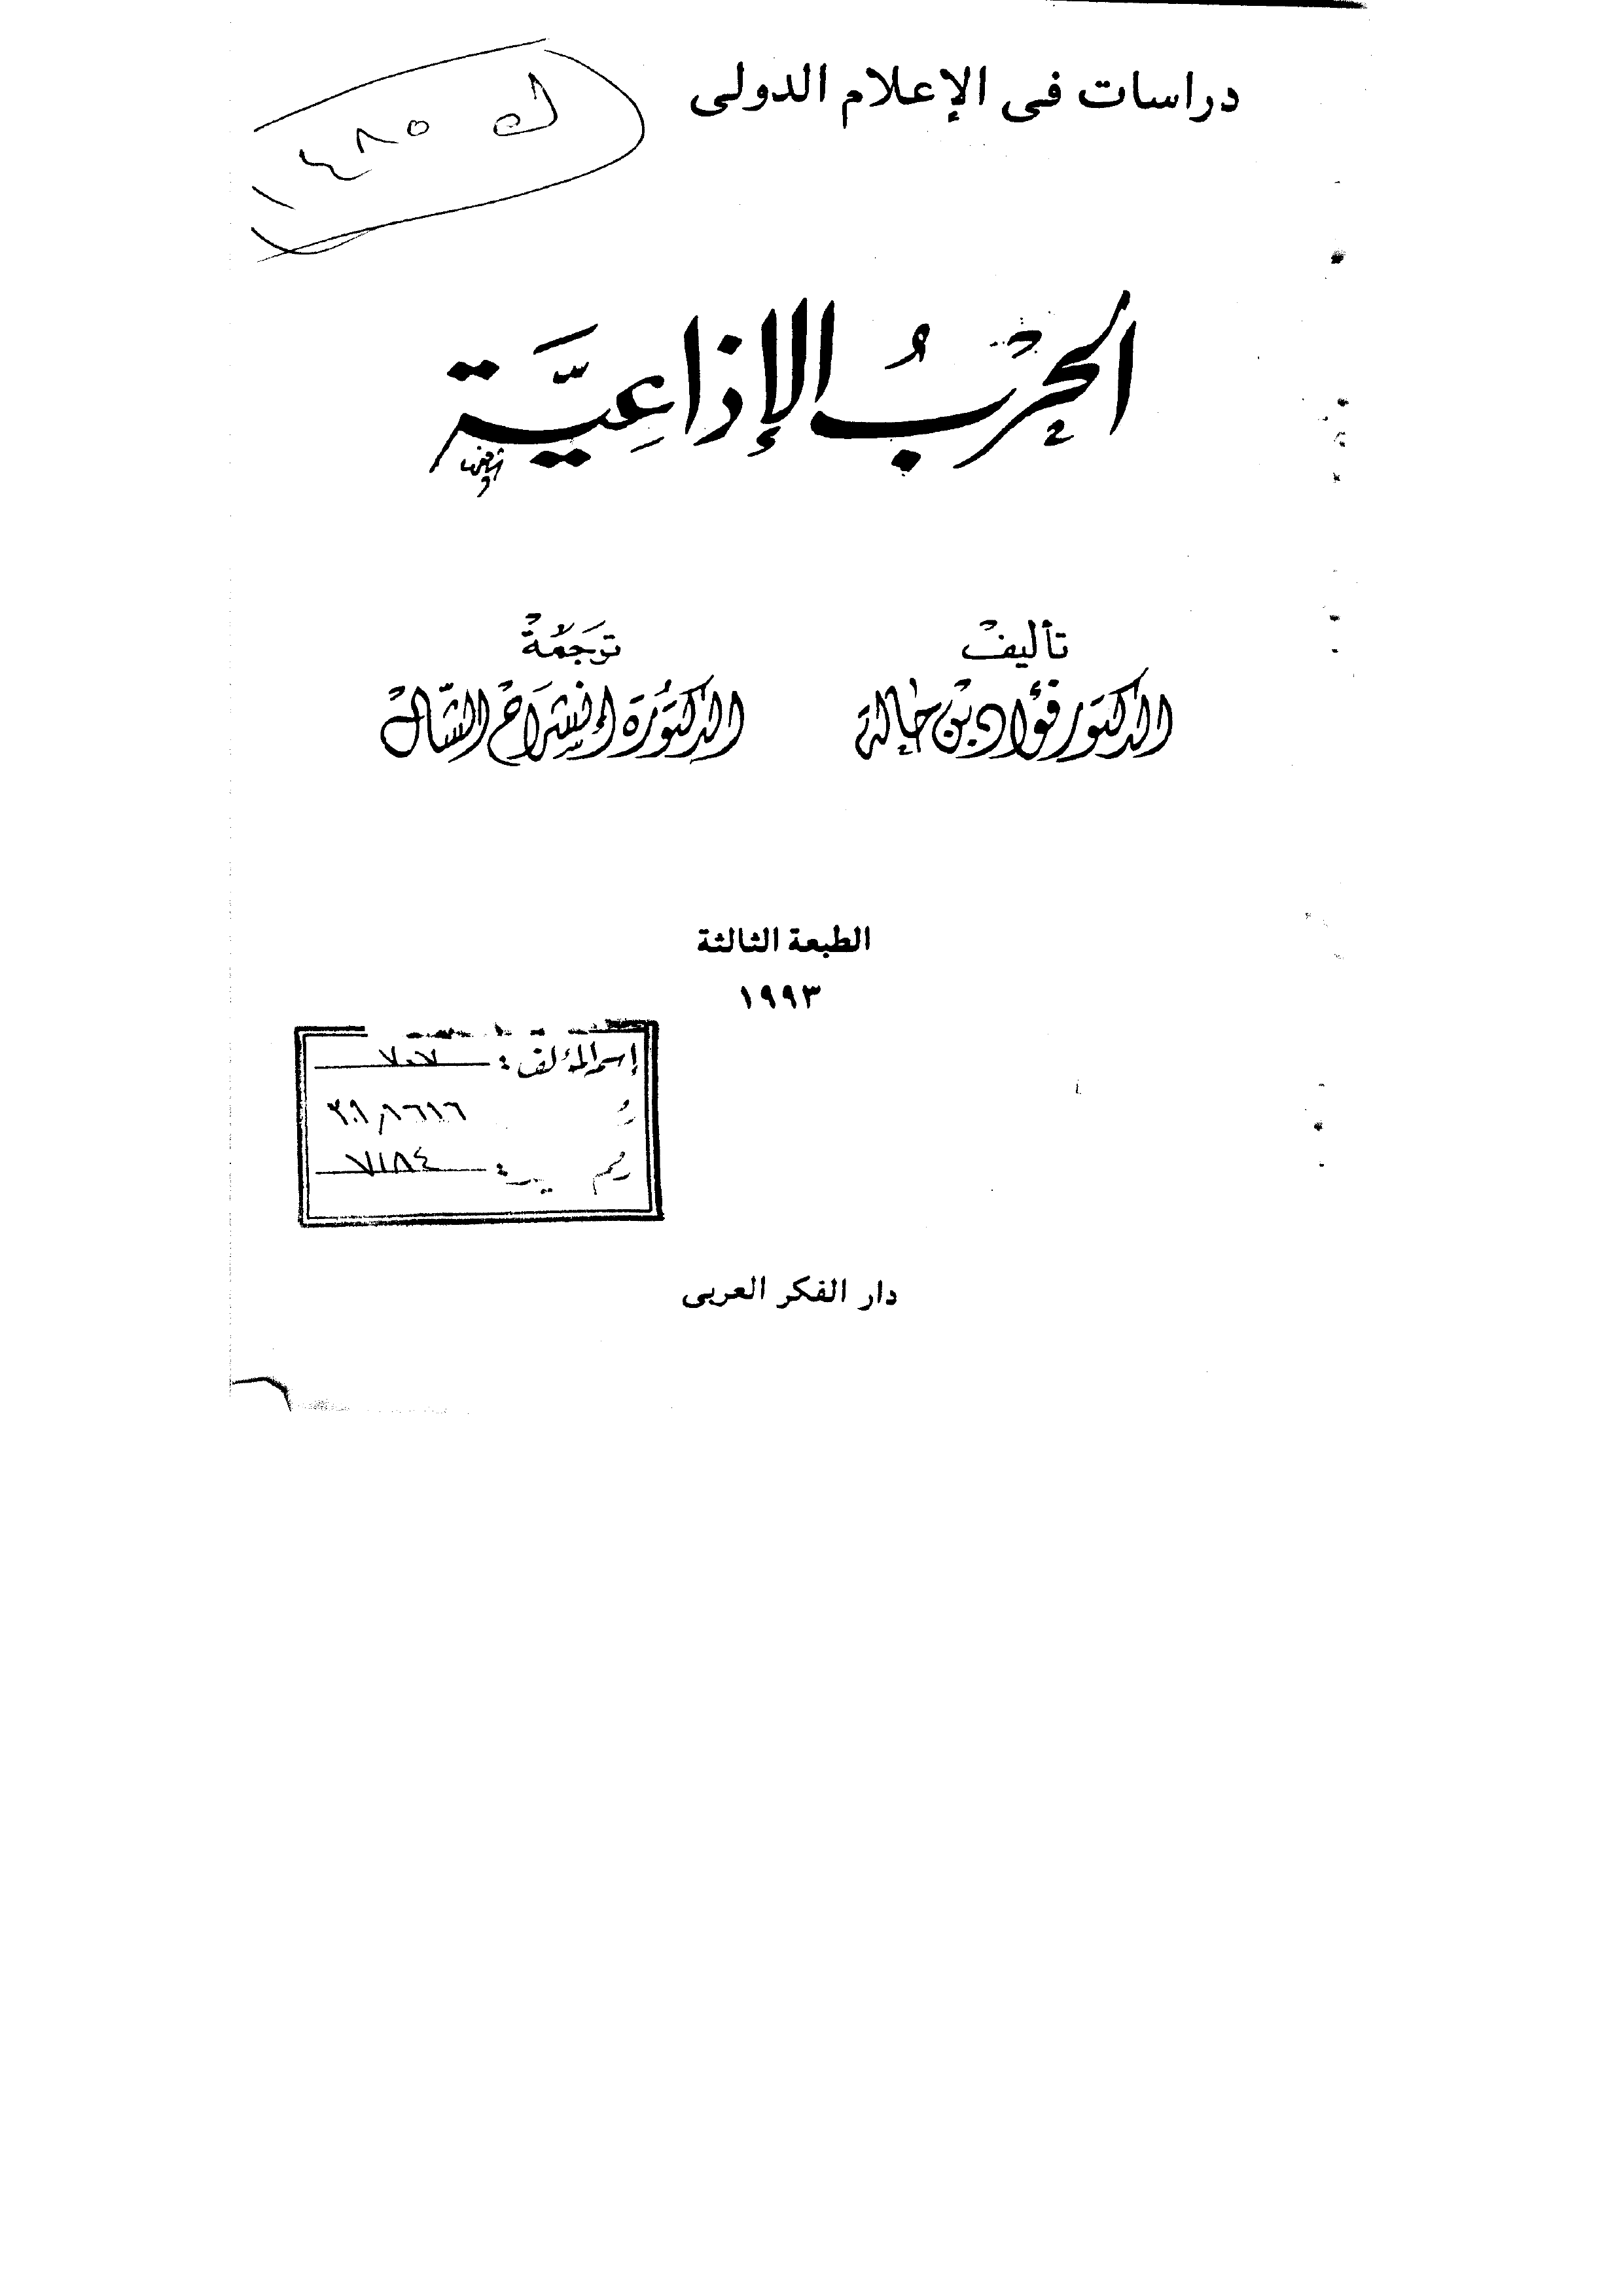 دراسات فى الإعلام الدولى
ك ٤٨٥
الحَرْبُ الإذَاعِيَّة
تأليف
الدكتور فؤاد بن حالة
ترجَمة
الدكتورَة انشراح الشال
الطبعة الثالثة
١٩٩٣
إسم المؤلف :
٧١٨٤
دار الفكر العربى